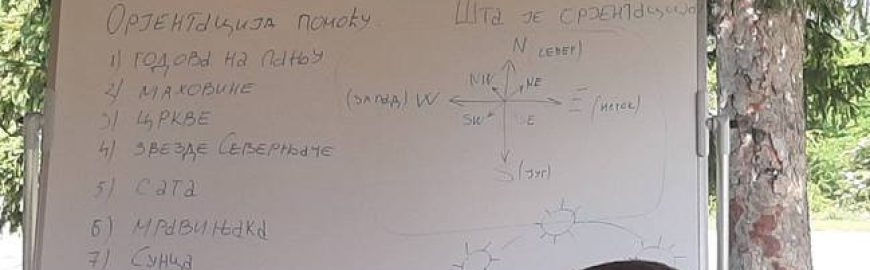 Оријентација помоћу
Шта је оријентација
1) годова на пању
2) маховине
3) цркве
4) звезде Северњаче
5) сата
6) мравињака
7) Сунца
N (север)
NW
NE
(запад) W
E (исток)
SW
SE
S (југ)